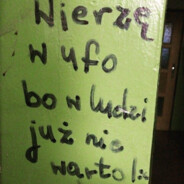 Wierzę
w ufo
bo w ludzi
już nie
warto!: